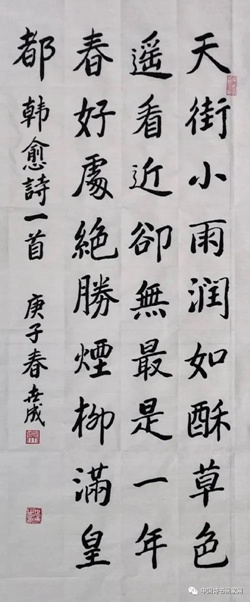 天街小雨润如酥草色
遥看近卻無最是一年
春好處絕勝煙柳滿皇
都 韓愈詩一首 庚子春 世成
中国诗书画家网